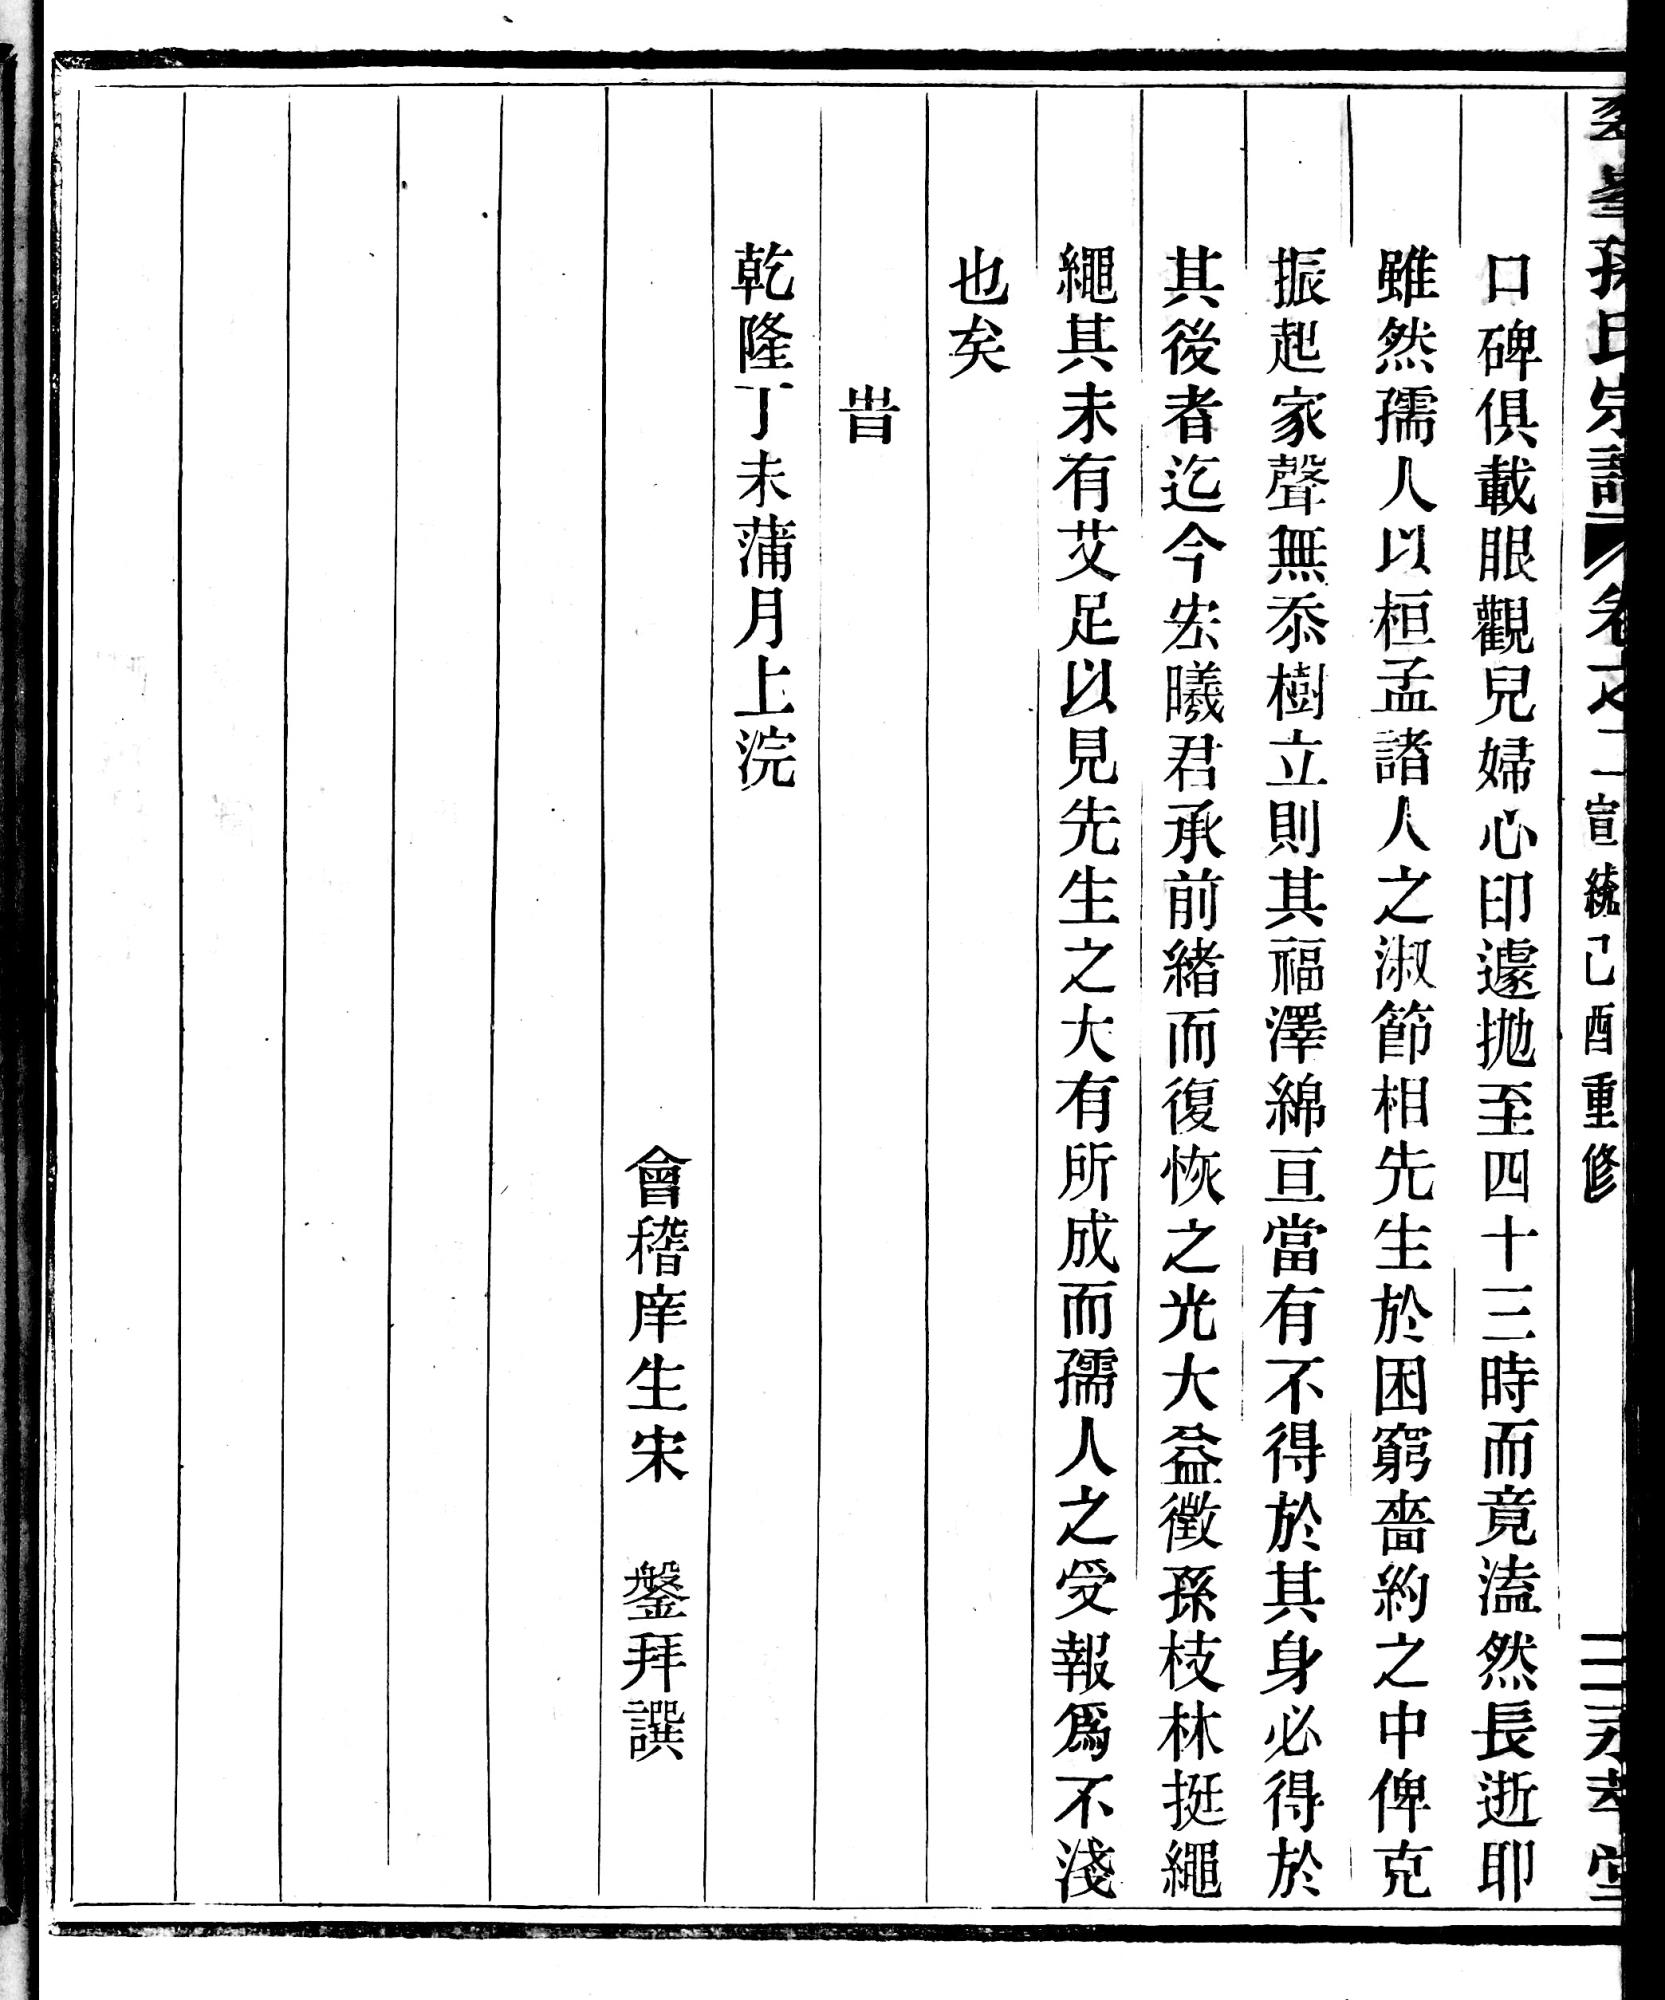 孫氏宗譜 卷之二 宣統己酉重修 二 永孝堂
口碑俱載眼觀兒婦心印遽拋至四十三時而竟溘然長逝耶
雖然孺人以桓孟諸人之淑節相先生於困窮嗇約之中俾克
振起家聲無忝樹立則其福澤綿亘當有不得於其身必得於
其後者迄今宏曦君承前緒而復恢之光大益徵孫枝林挺繩
繩其未有艾足以見先生之大有所成而孺人之受報爲不淺
也矣
旹
乾隆丁未蒲月上浣
會稽庠生宋 鎜拜譔